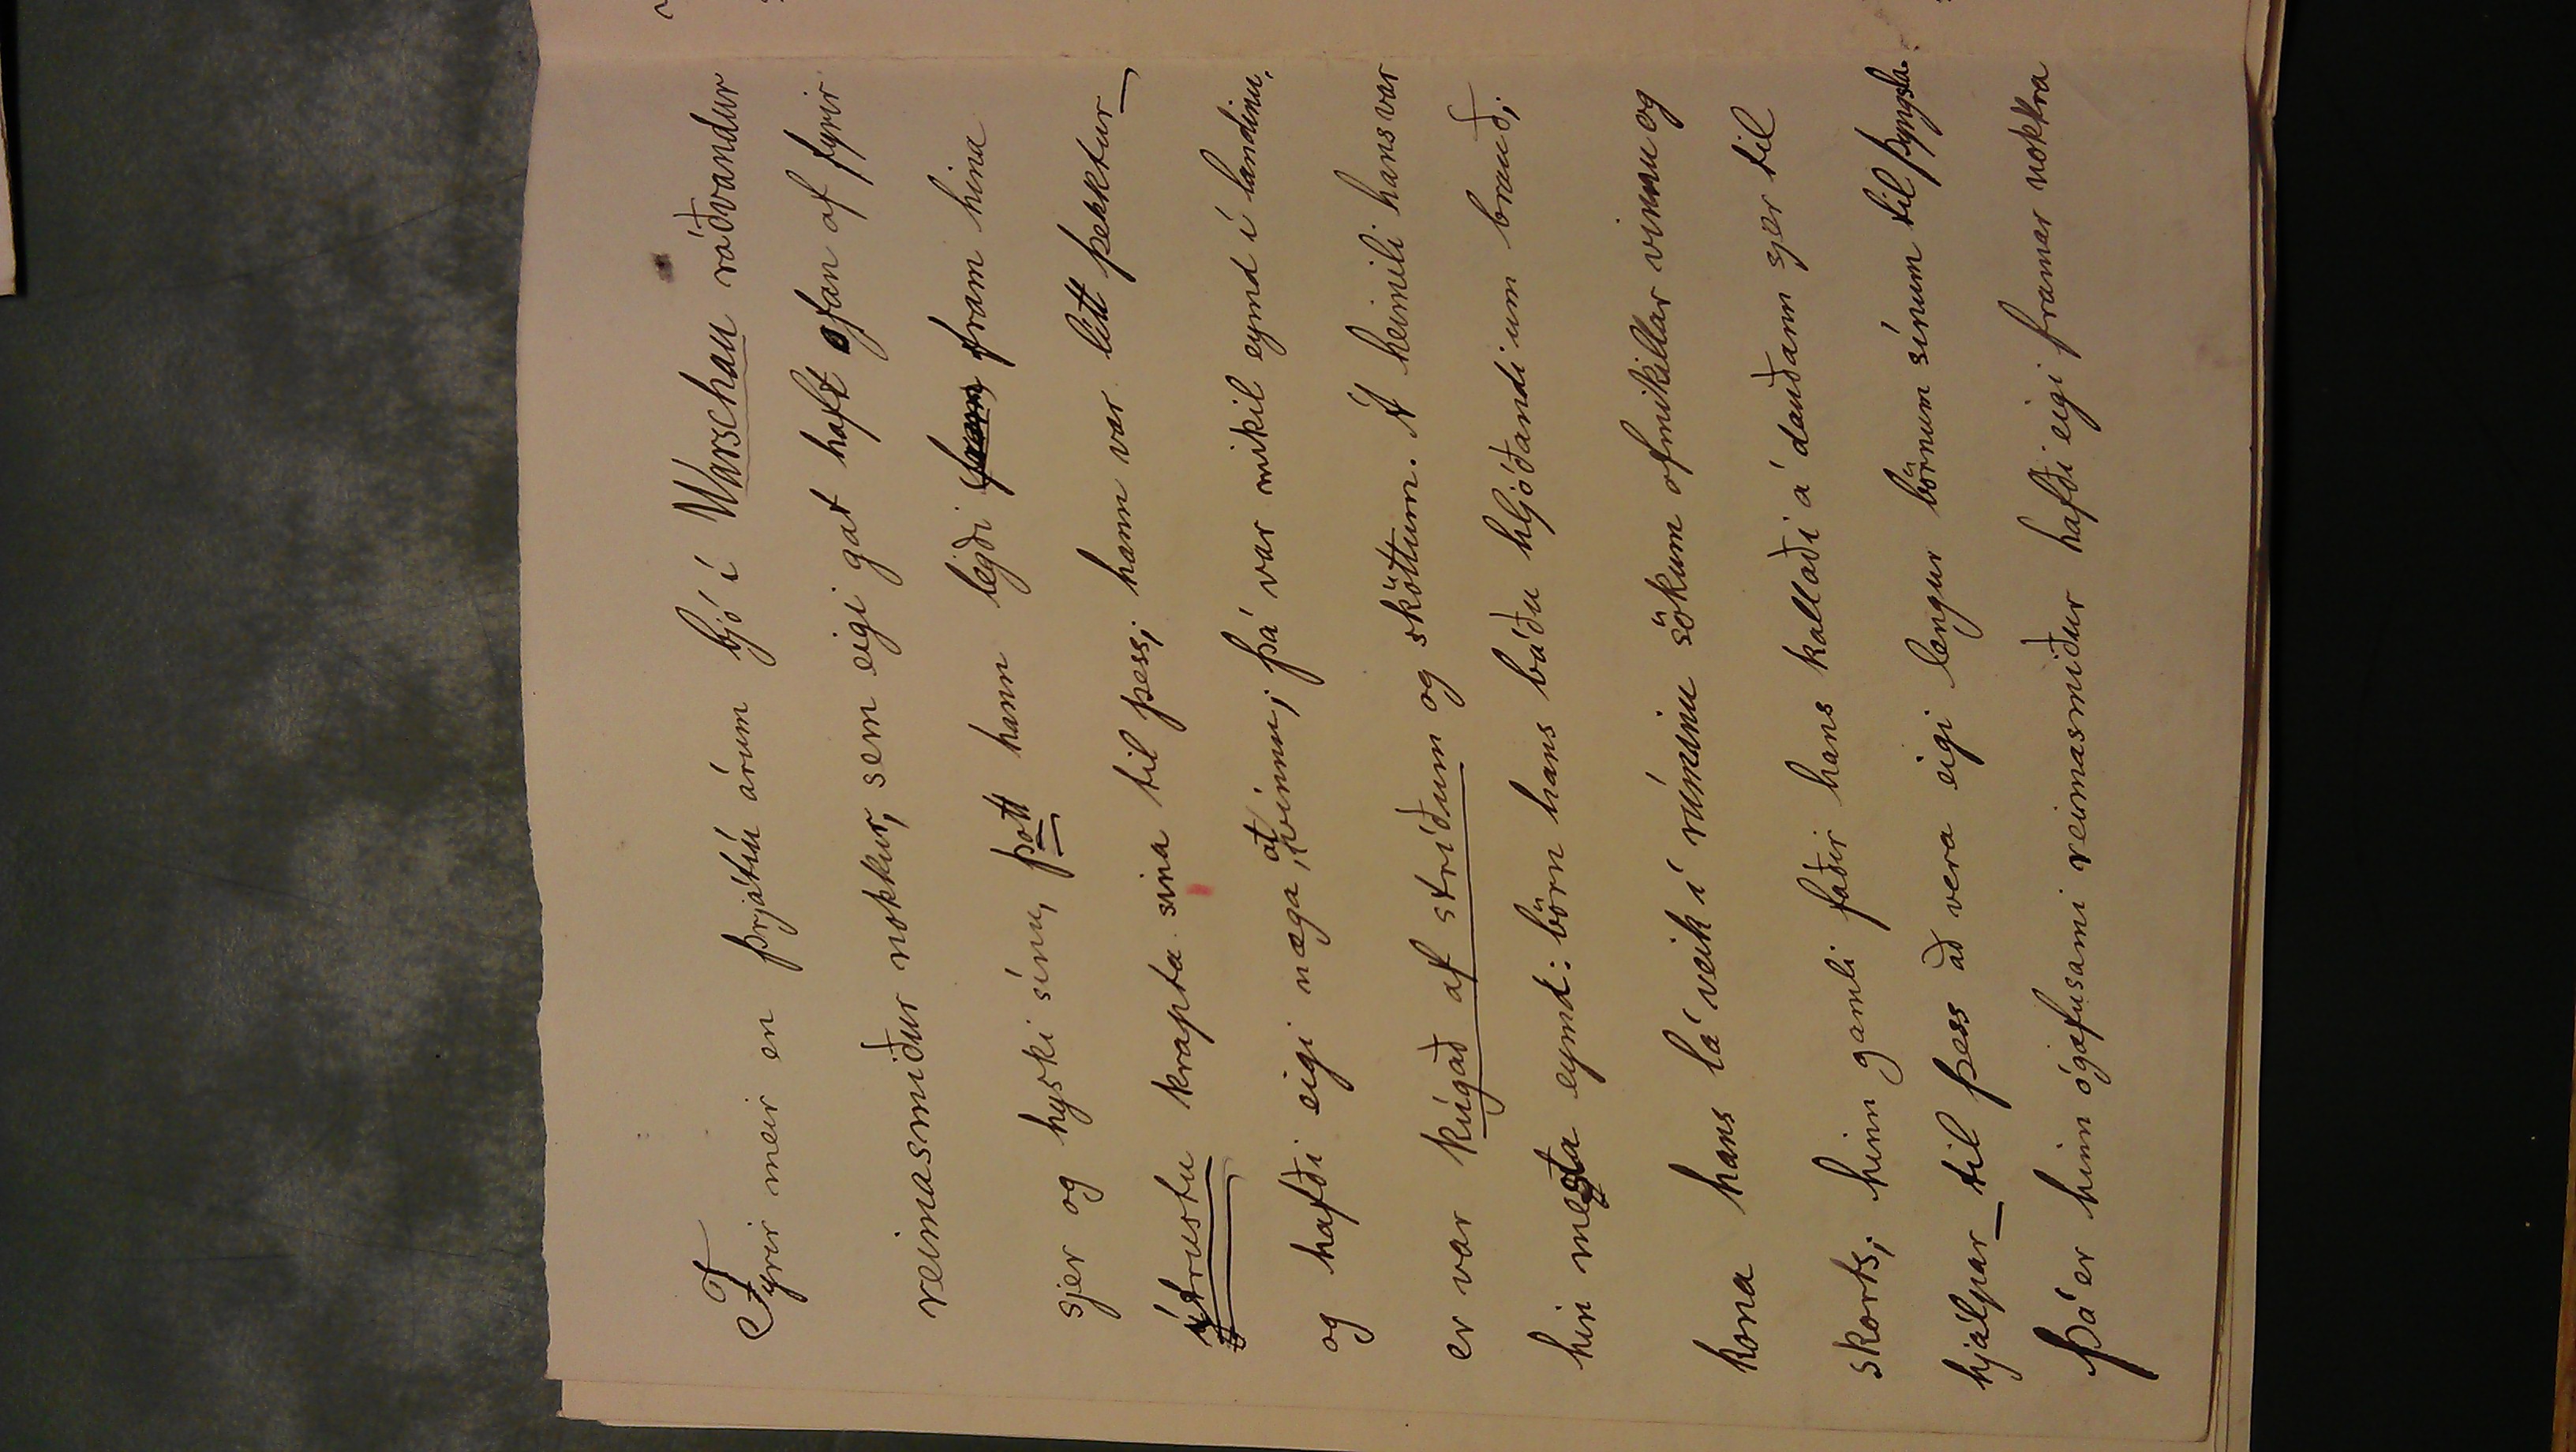 Fyrir meir en þrjátíu árum bjó í Warschau ráðvandur
reimasmiður nokkur, sem eigi gat haft ofan af fyrir
sjer og hyski sínu, þott hann legði fram fram hina
ýtrustu krapta sina til þess; hann var litt þekktur
og hafði eigi næga at vinnu; þá var mikil eymd í landinu,
er var kúgað af stríðum og sköttum. Á heimili hans var
hin mesta eymd: börn hans báðu hljóðandi um brauð;
kona hans lá veik í rúminu sökum ofmikillar vinnu og
skorts; hinn gamli faðir hans kallaði á dauðann sjer til
hjálpar til þess að vera eigi lengur börnum sínum til þyngsla.
Þá er hinn ógæfusami reimasmiður hafði eigi framar nokkra